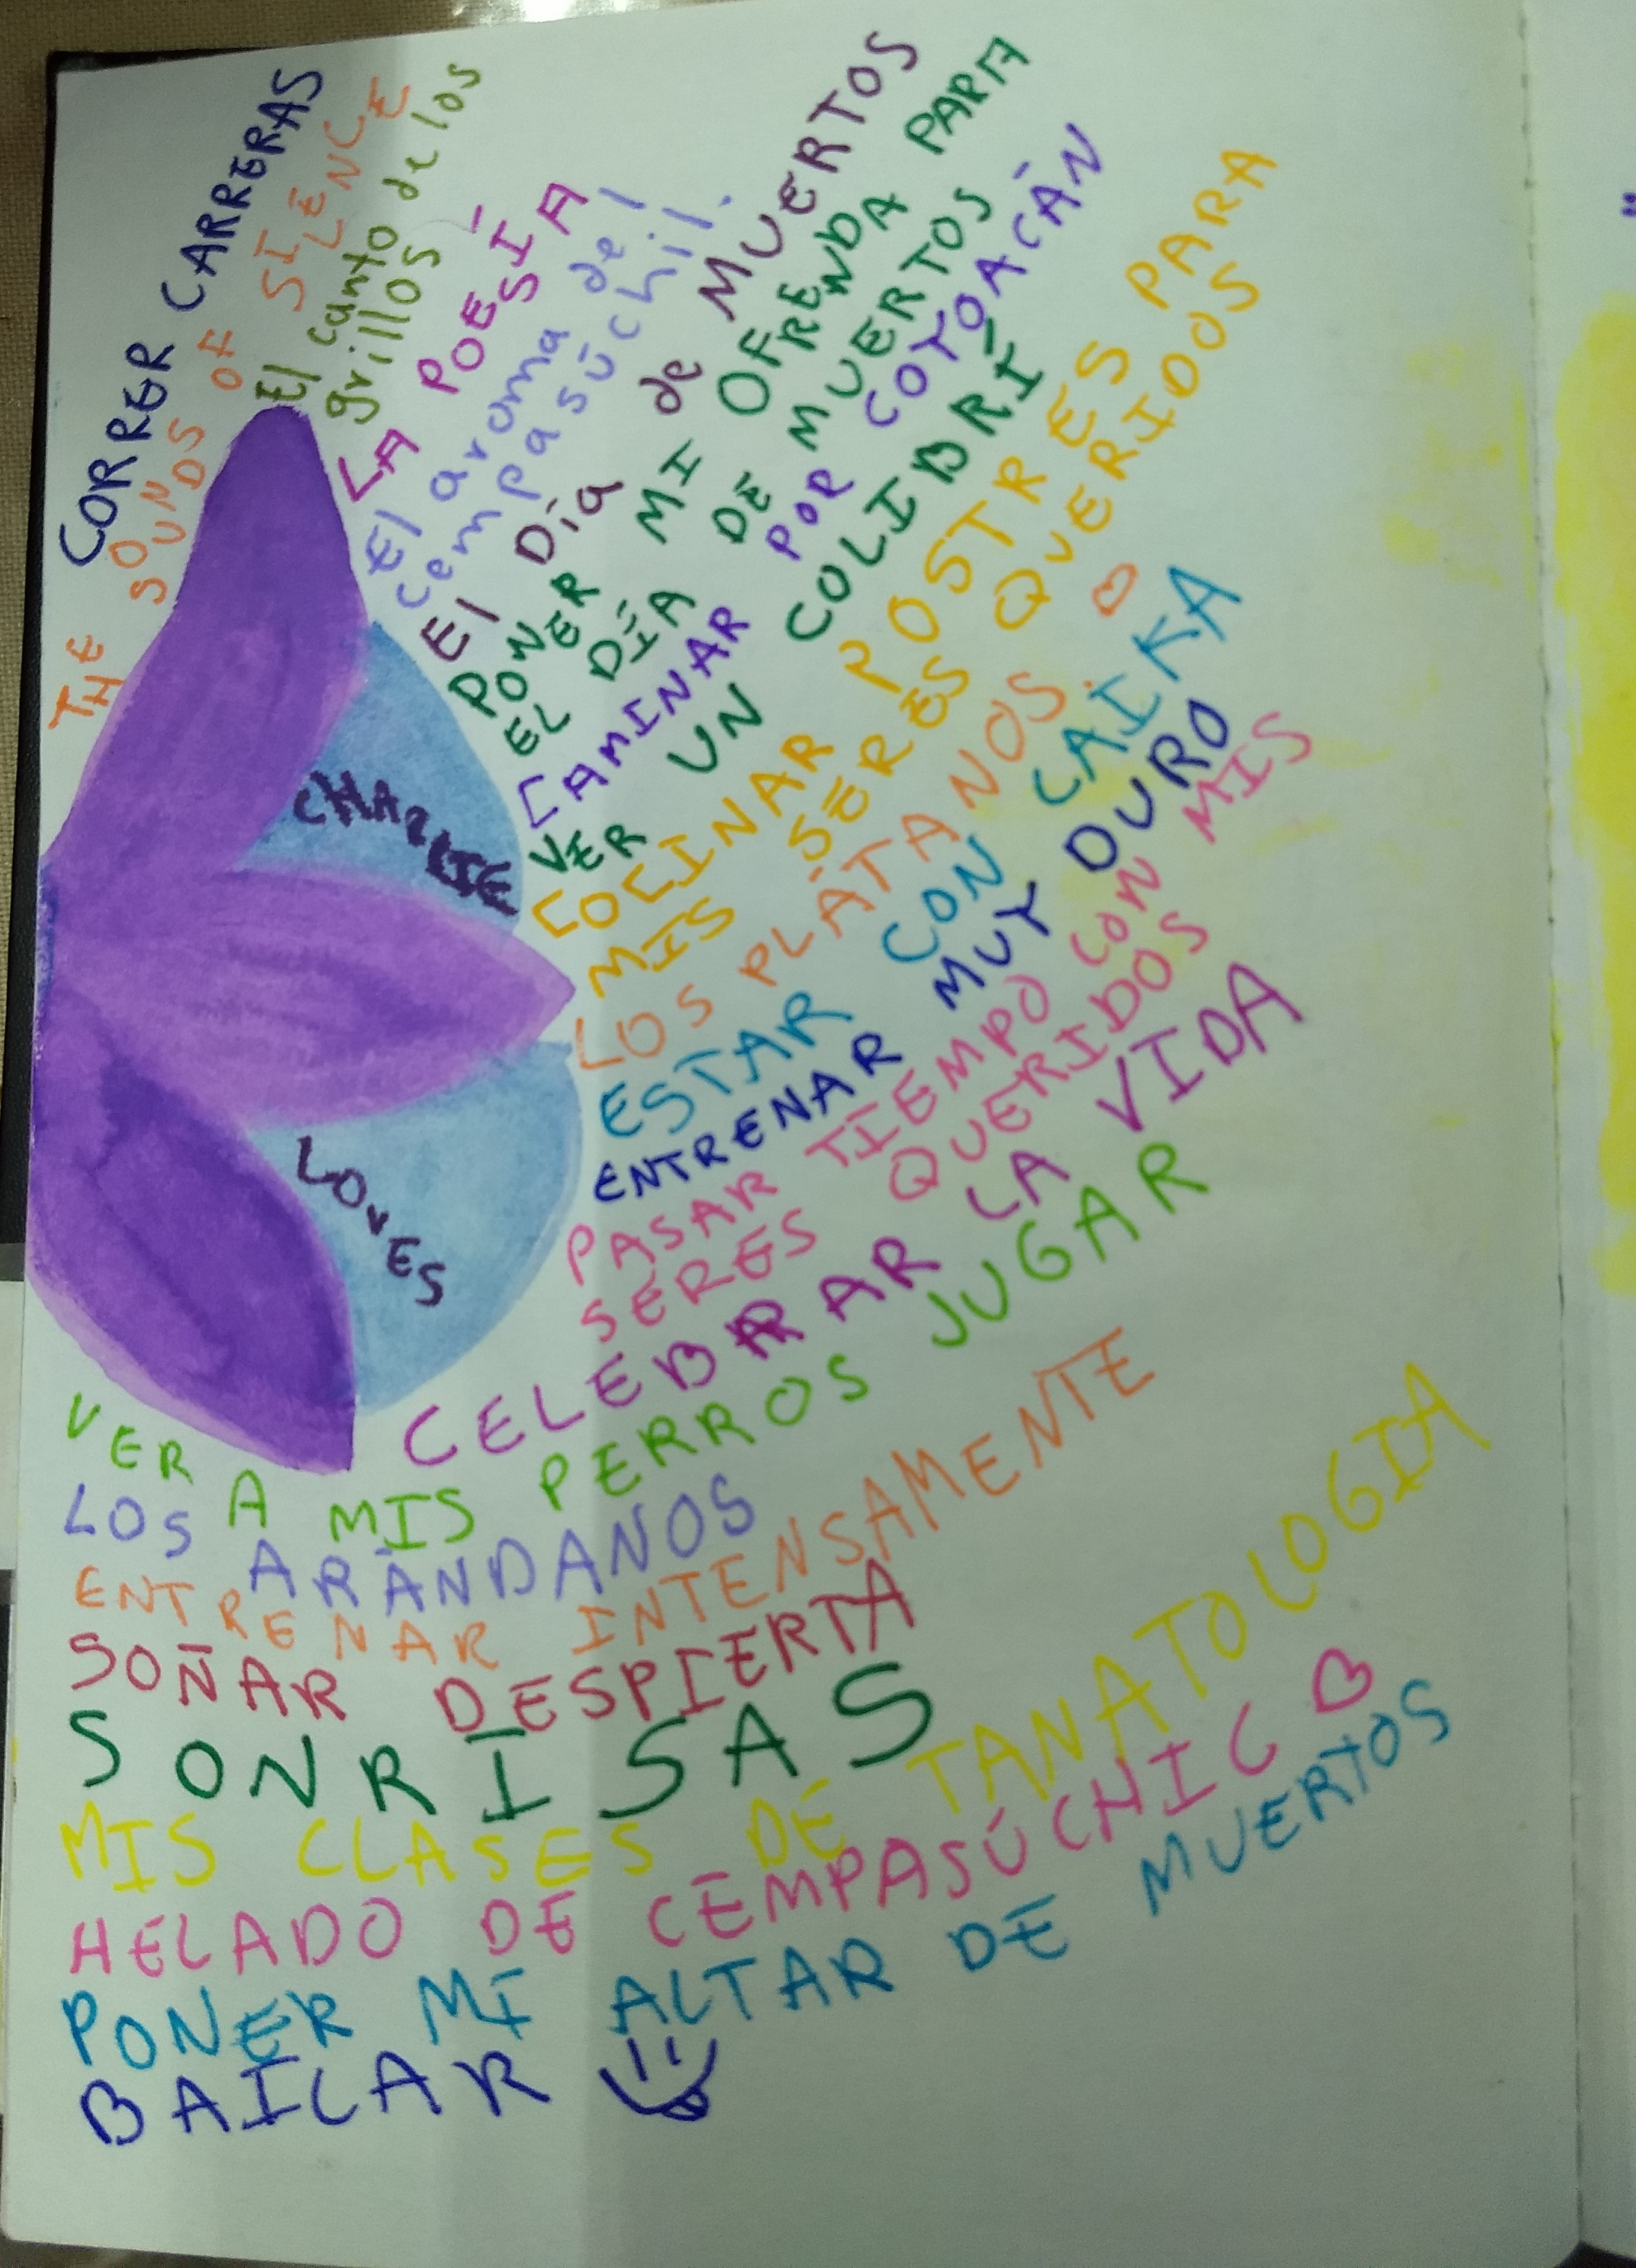 CORRER CARRERAS
THE SOUNDS OF SILENCE
El canto de los
grillos
LA POESÍA
El aroma del
cempasúchil.
El Día de MUERTOS
PONER MI OFRENDA PARA
EL DÍA DE MUERTOS
CAMINAR POR COYOACÁN
VER UN COLIBRÍ
COCINAR POSTRES PARA
MIS SERES QUERIDOS
LOS PLATANOS
ESTAR CON CAIKA
ENTRENAR MUY DURO
PASAR TIEMPO CON MIS
SERES QUERIDOS
CELEBRAR LA VIDA
VER A MIS PERROS JUGAR
LOS ARÁNDANOS
ENTRENAR INTENSAMENTE
SOÑAR DESPIERTA
SONRISAS
MIS CLASES DE TANATOLOGIA
HELADO DE CEMPASÚCHIL
PONER MI ALTAR DE MUERTOS
BAILAR
CHARLIE
LOVES